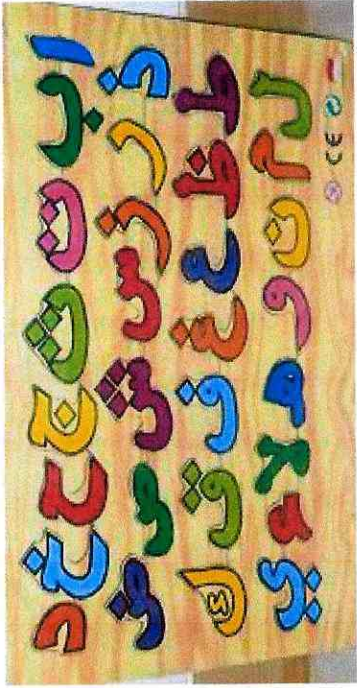 ا ب ت ث ج ح خ د
ذ ر ز س ش ص ض
ط ظ ع غ ف ق ك
ل م ن و ه لا ء ي
CE